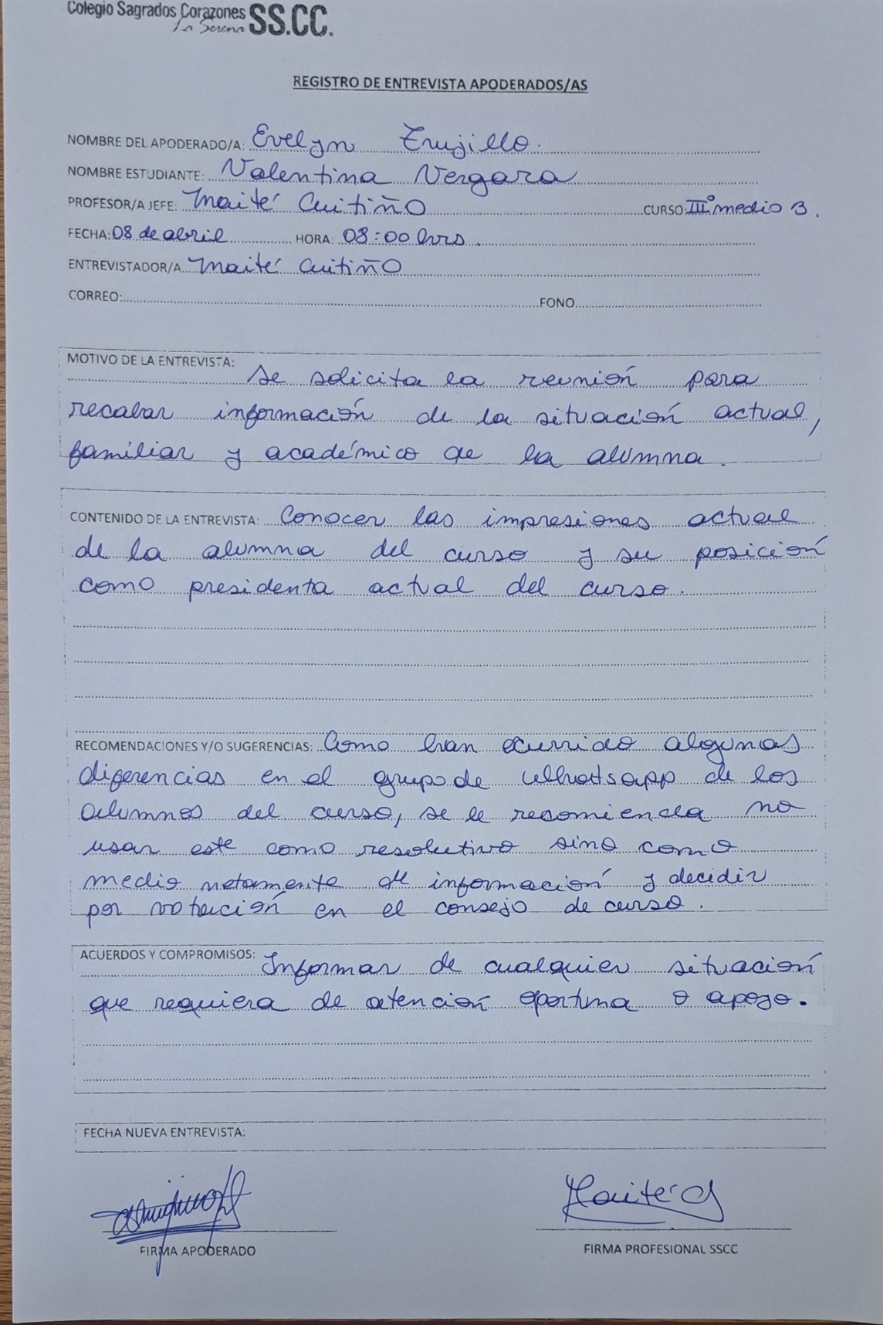 Colegio Sagrados Corazones SS.CC.
La Serena
REGISTRO DE ENTREVISTA APODERADOS/AS
NOMBRE DEL APODERADO/A: Evelyn Trujillo.
NOMBRE ESTUDIANTE: Valentina Vergara
PROFESOR/A JEFE: Maité Cuitiño CURSO IIIº medio B.
FECHA: 08 de abril HORA: 08:00 hrs.
ENTREVISTADOR/A Maité Cuitiño
CORREO: FONO
MOTIVO DE LA ENTREVISTA:
Se solicita la reunión para
recabar información de la situación actual,
familiar y académico de la alumna.
CONTENIDO DE LA ENTREVISTA: Conocer las impresiones actual
de la alumna del curso y su posición
como presidenta actual del curso.
RECOMENDACIONES Y/O SUGERENCIAS: Como han ocurrido algunas
diferencias en el grupo de Whatsapp de los
alumnos del curso, se le recomienda no
usar este como resolutivo sino como
medio netamente de información y decidir
por votación en el consejo de curso.
ACUERDOS Y COMPROMISOS: Informar de cualquier situación
que requiera de atención oportuna o apoyo.
FECHA NUEVA ENTREVISTA:
Maité C
FIRMA APODERADO FIRMA PROFESIONAL SSCC